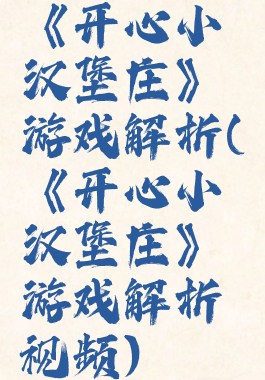 《开心小
汉堡庄》
游戏解析(
《开心小
汉堡庄》
游戏解析
视频)